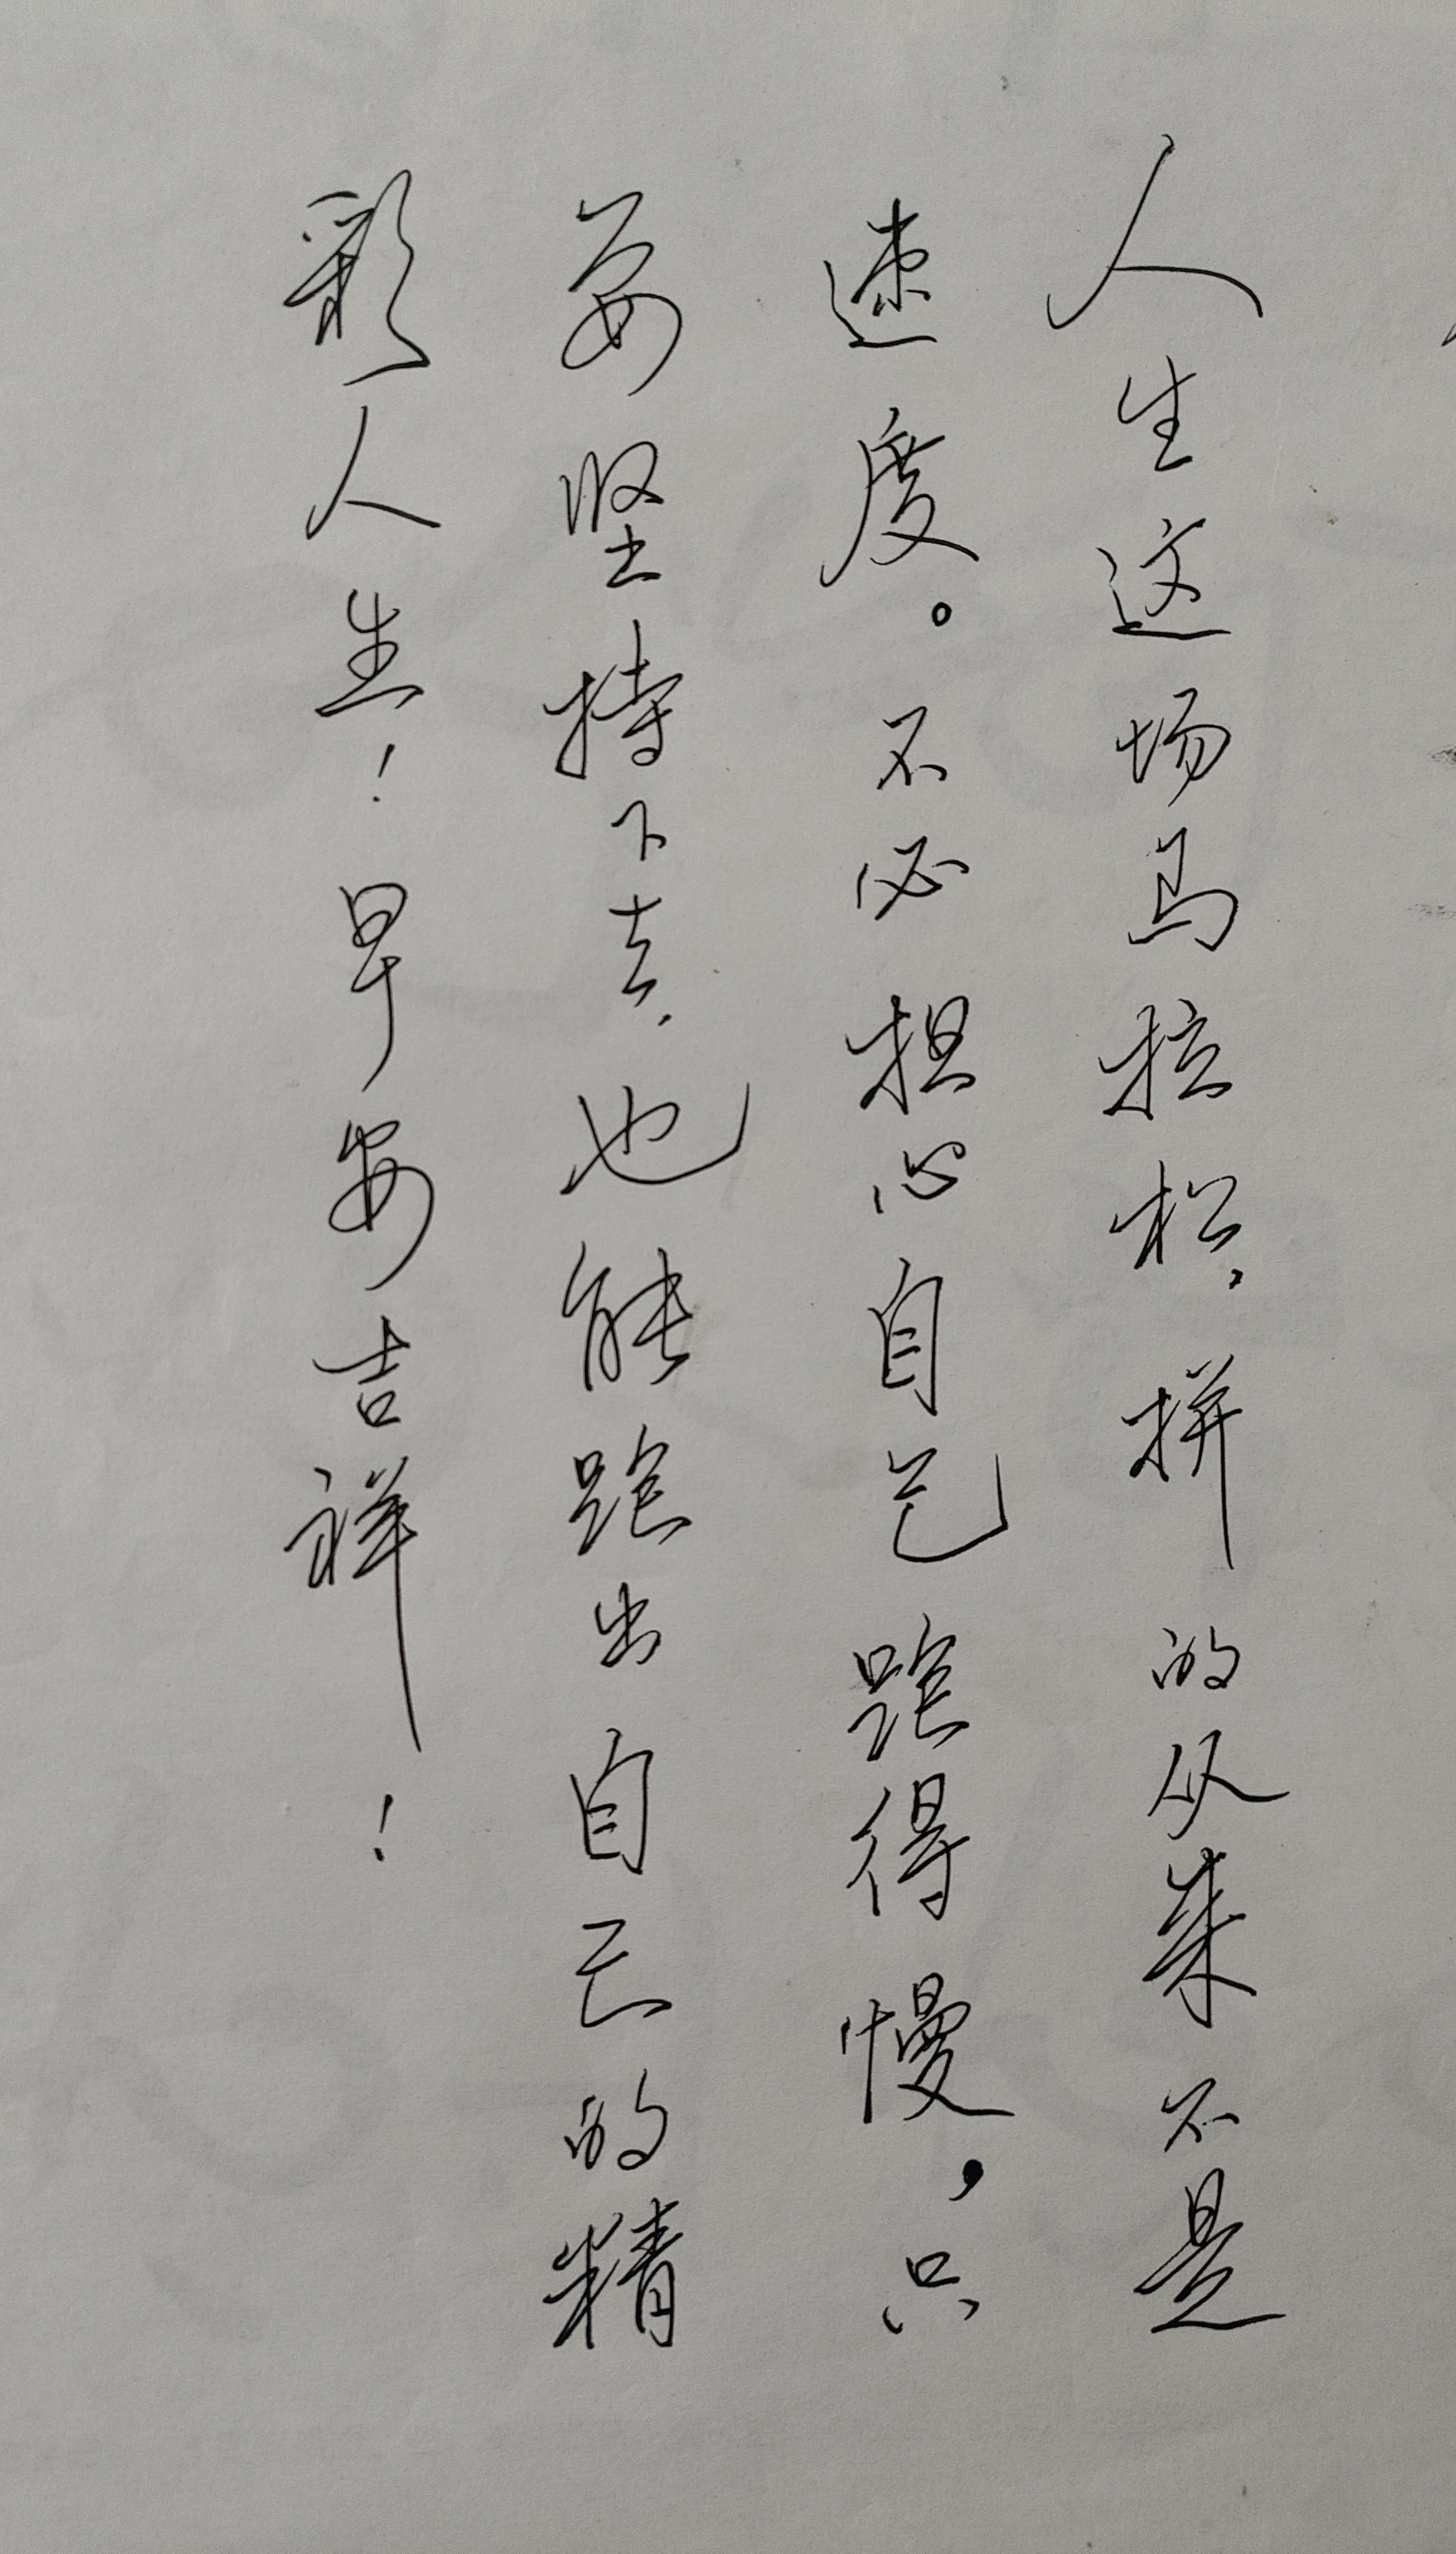 人生这场马拉松，拼的从来不是
速度。不必担心自己跑得慢，只
要坚持下去，也能跑出自己的精
彩人生！早安吉祥！